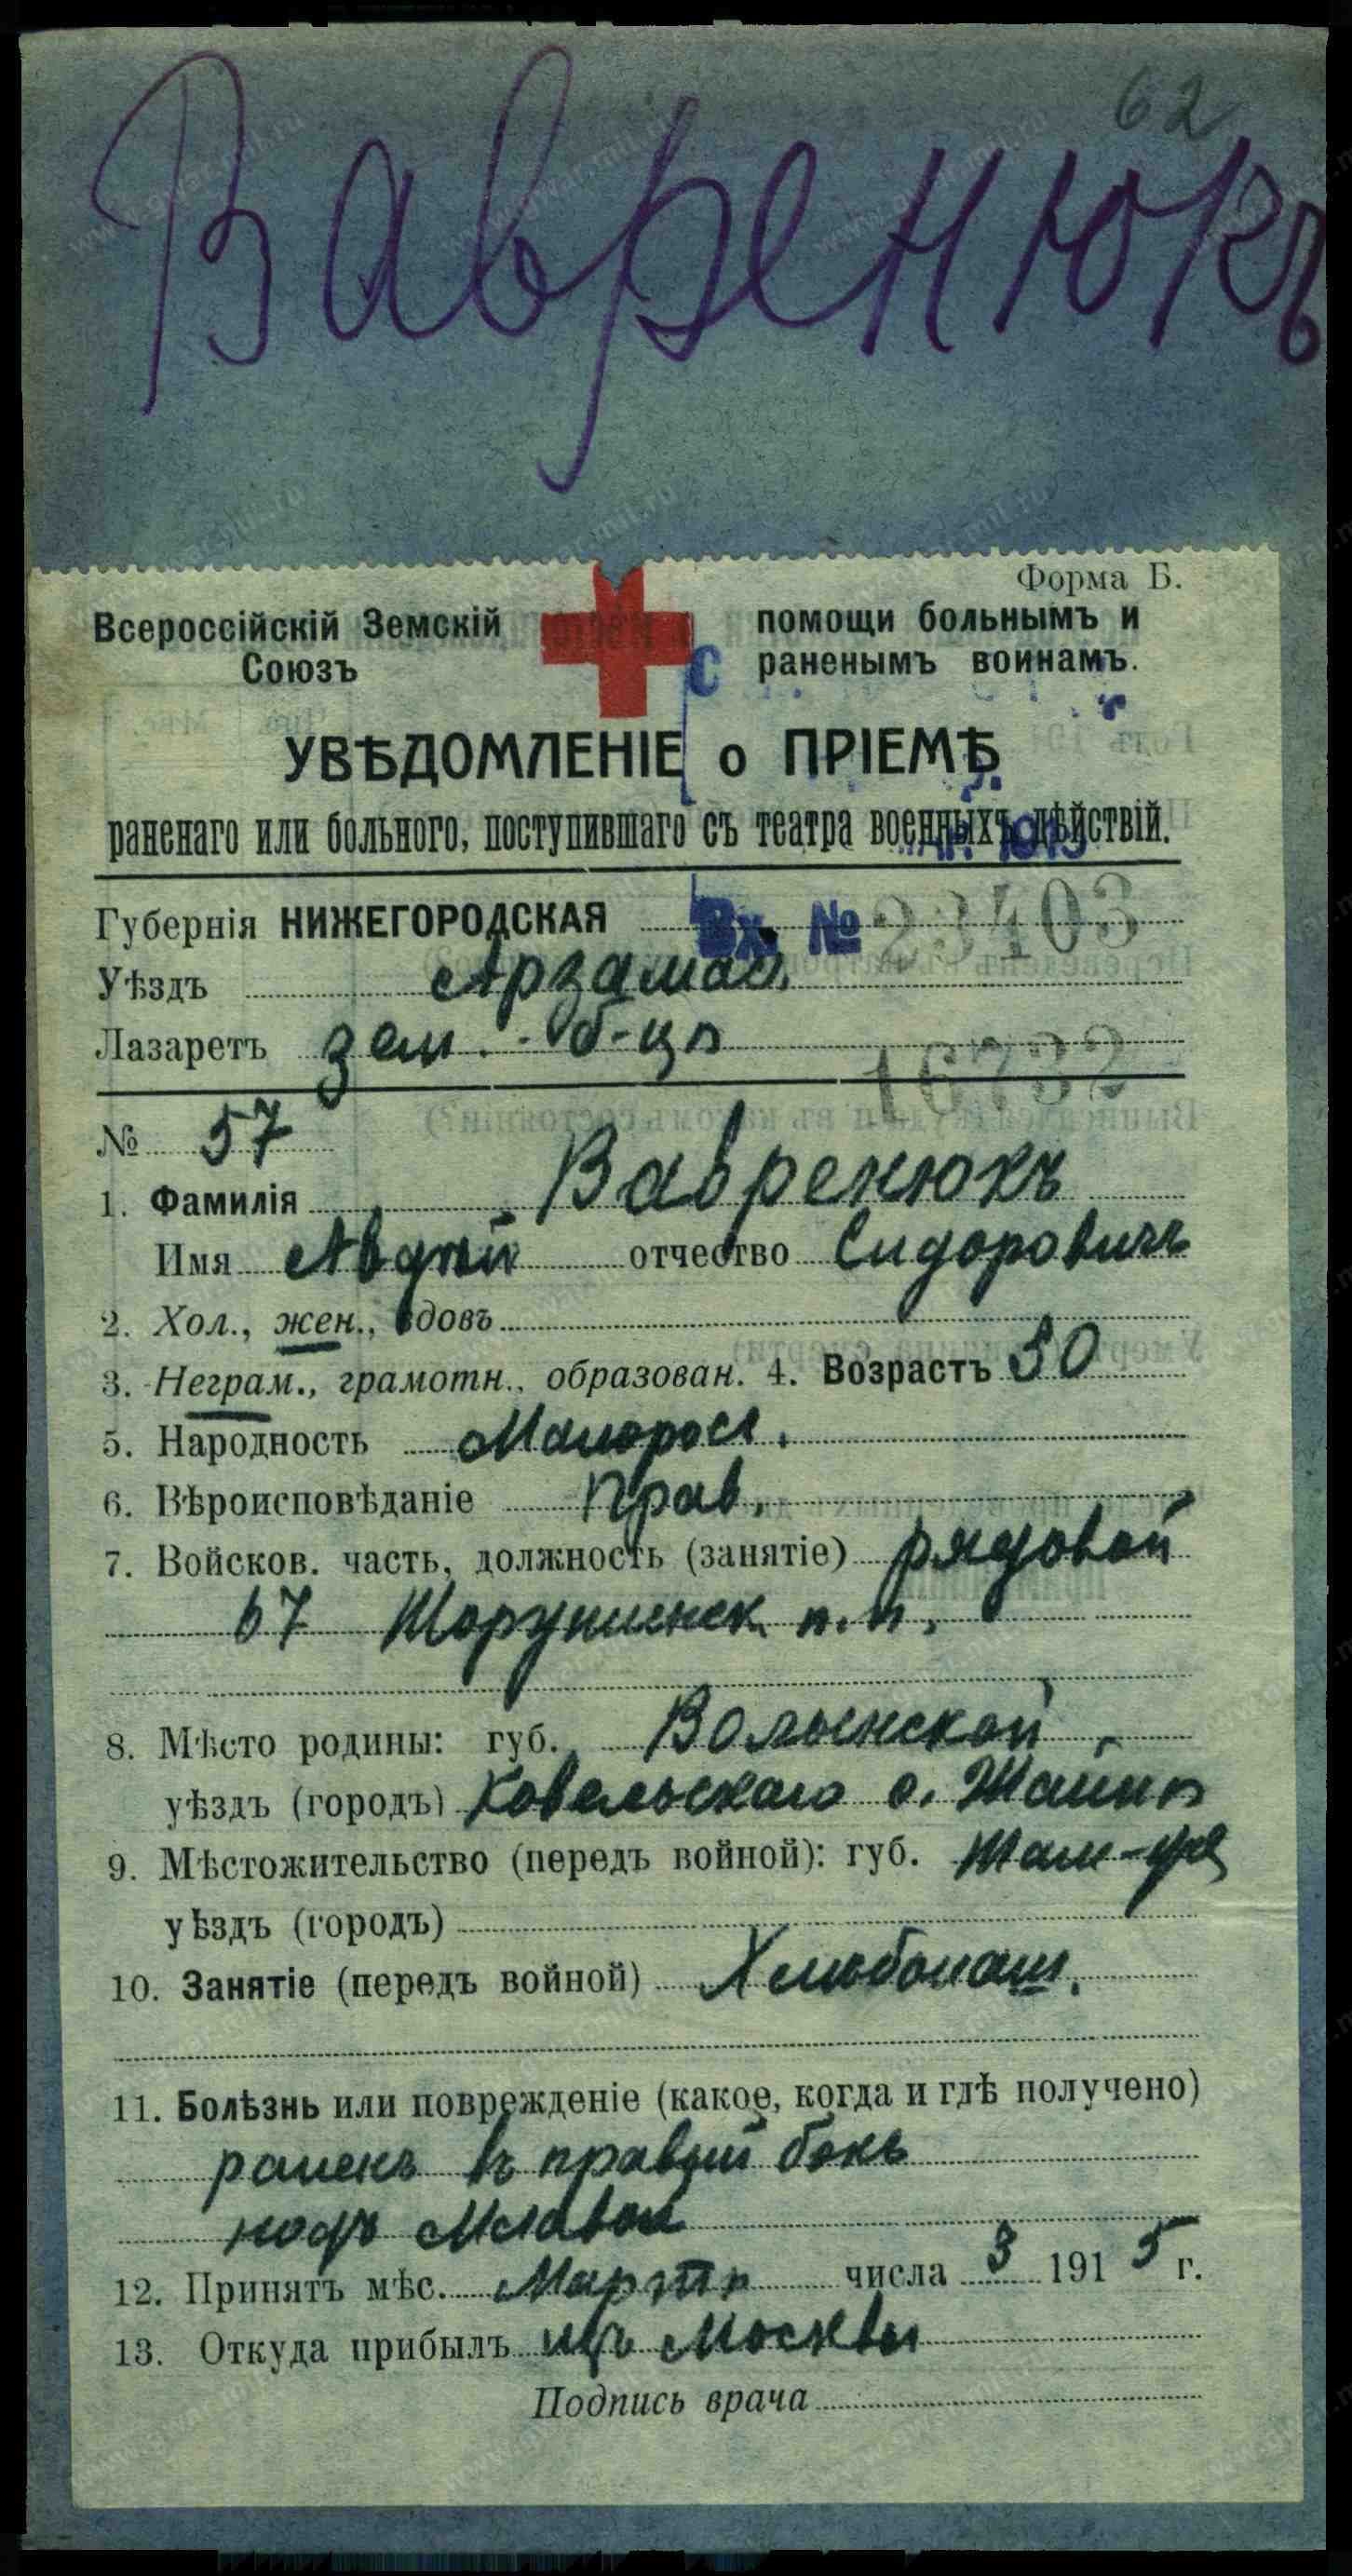 62
Вавренюкъ
Форма Б.
Всероссійскій Земскій Союзъ
помощи больнымъ и раненымъ воинамъ.
УВѢДОМЛЕНІЕ о ПРІЕМѢ
раненаго или больного, поступившаго съ театра военныхъ дѣйствій.
Губернія НИЖЕГОРОДСКАЯ
Вх. № 23403
Уѣздъ Арзамас.
Лазаретъ зем. б-ца
16732
№ 57
1. Фамилія Вавренюкъ
Имя Авдѣй отчество Сидоровичъ
2. Хол., жен., вдовъ
3. Неграм., грамотн., образован. 4. Возрастъ 30
5. Народность Малоросс.
6. Вѣроисповѣданіе Прав.
7. Войсков. часть, должность (занятіе) рядовой
67 п. п.
8. Мѣсто родины: губ. Волынской
уѣздъ (городъ) Ковельскаго с.
9. Мѣстожительство (передъ войной): губ. Там-же
уѣздъ (городъ)
10. Занятіе (передъ войной) Хлѣбопаш.
11. Болѣзнь или поврежденіе (какое, когда и гдѣ получено)
раненъ въ правый бокъ
подъ Млавой
12. Принятъ мѣс. Марта числа 3 1915 г.
13. Откуда прибылъ изъ Москвы
Подпись врача